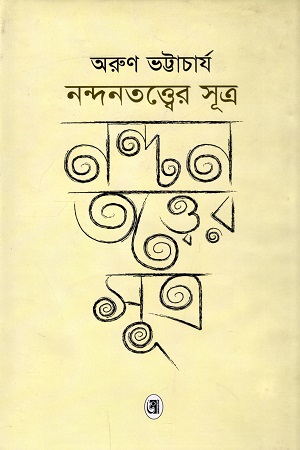 অরুণ ভট্টাচার্য
নন্দনতত্ত্বের সূত্র
নন্দন
তত্ত্বের
সূত্র